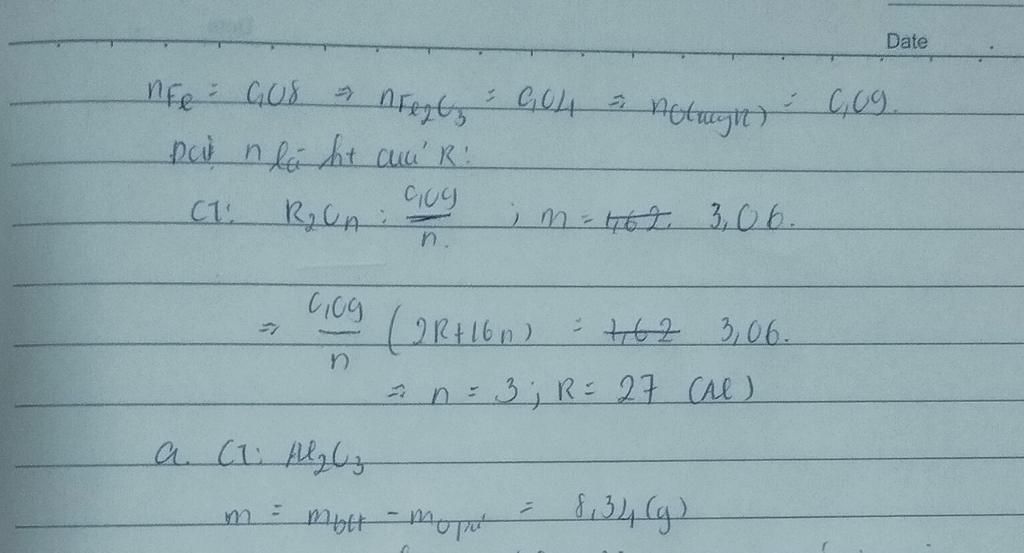 Date
nFe = 0,08 => nFe2O3 = 0,04 => nO( ) = 0,09.
Đặt n là ht của R:
CT: R2On : 0,09/n ; m = 1,62 3,06.
=> 0,09/n (2R+16n) = 1,62 3,06.
=> n = 3; R = 27 (Al)
a. CT: Al2O3
m = mbđ - mO pứ = 8,34 (g)